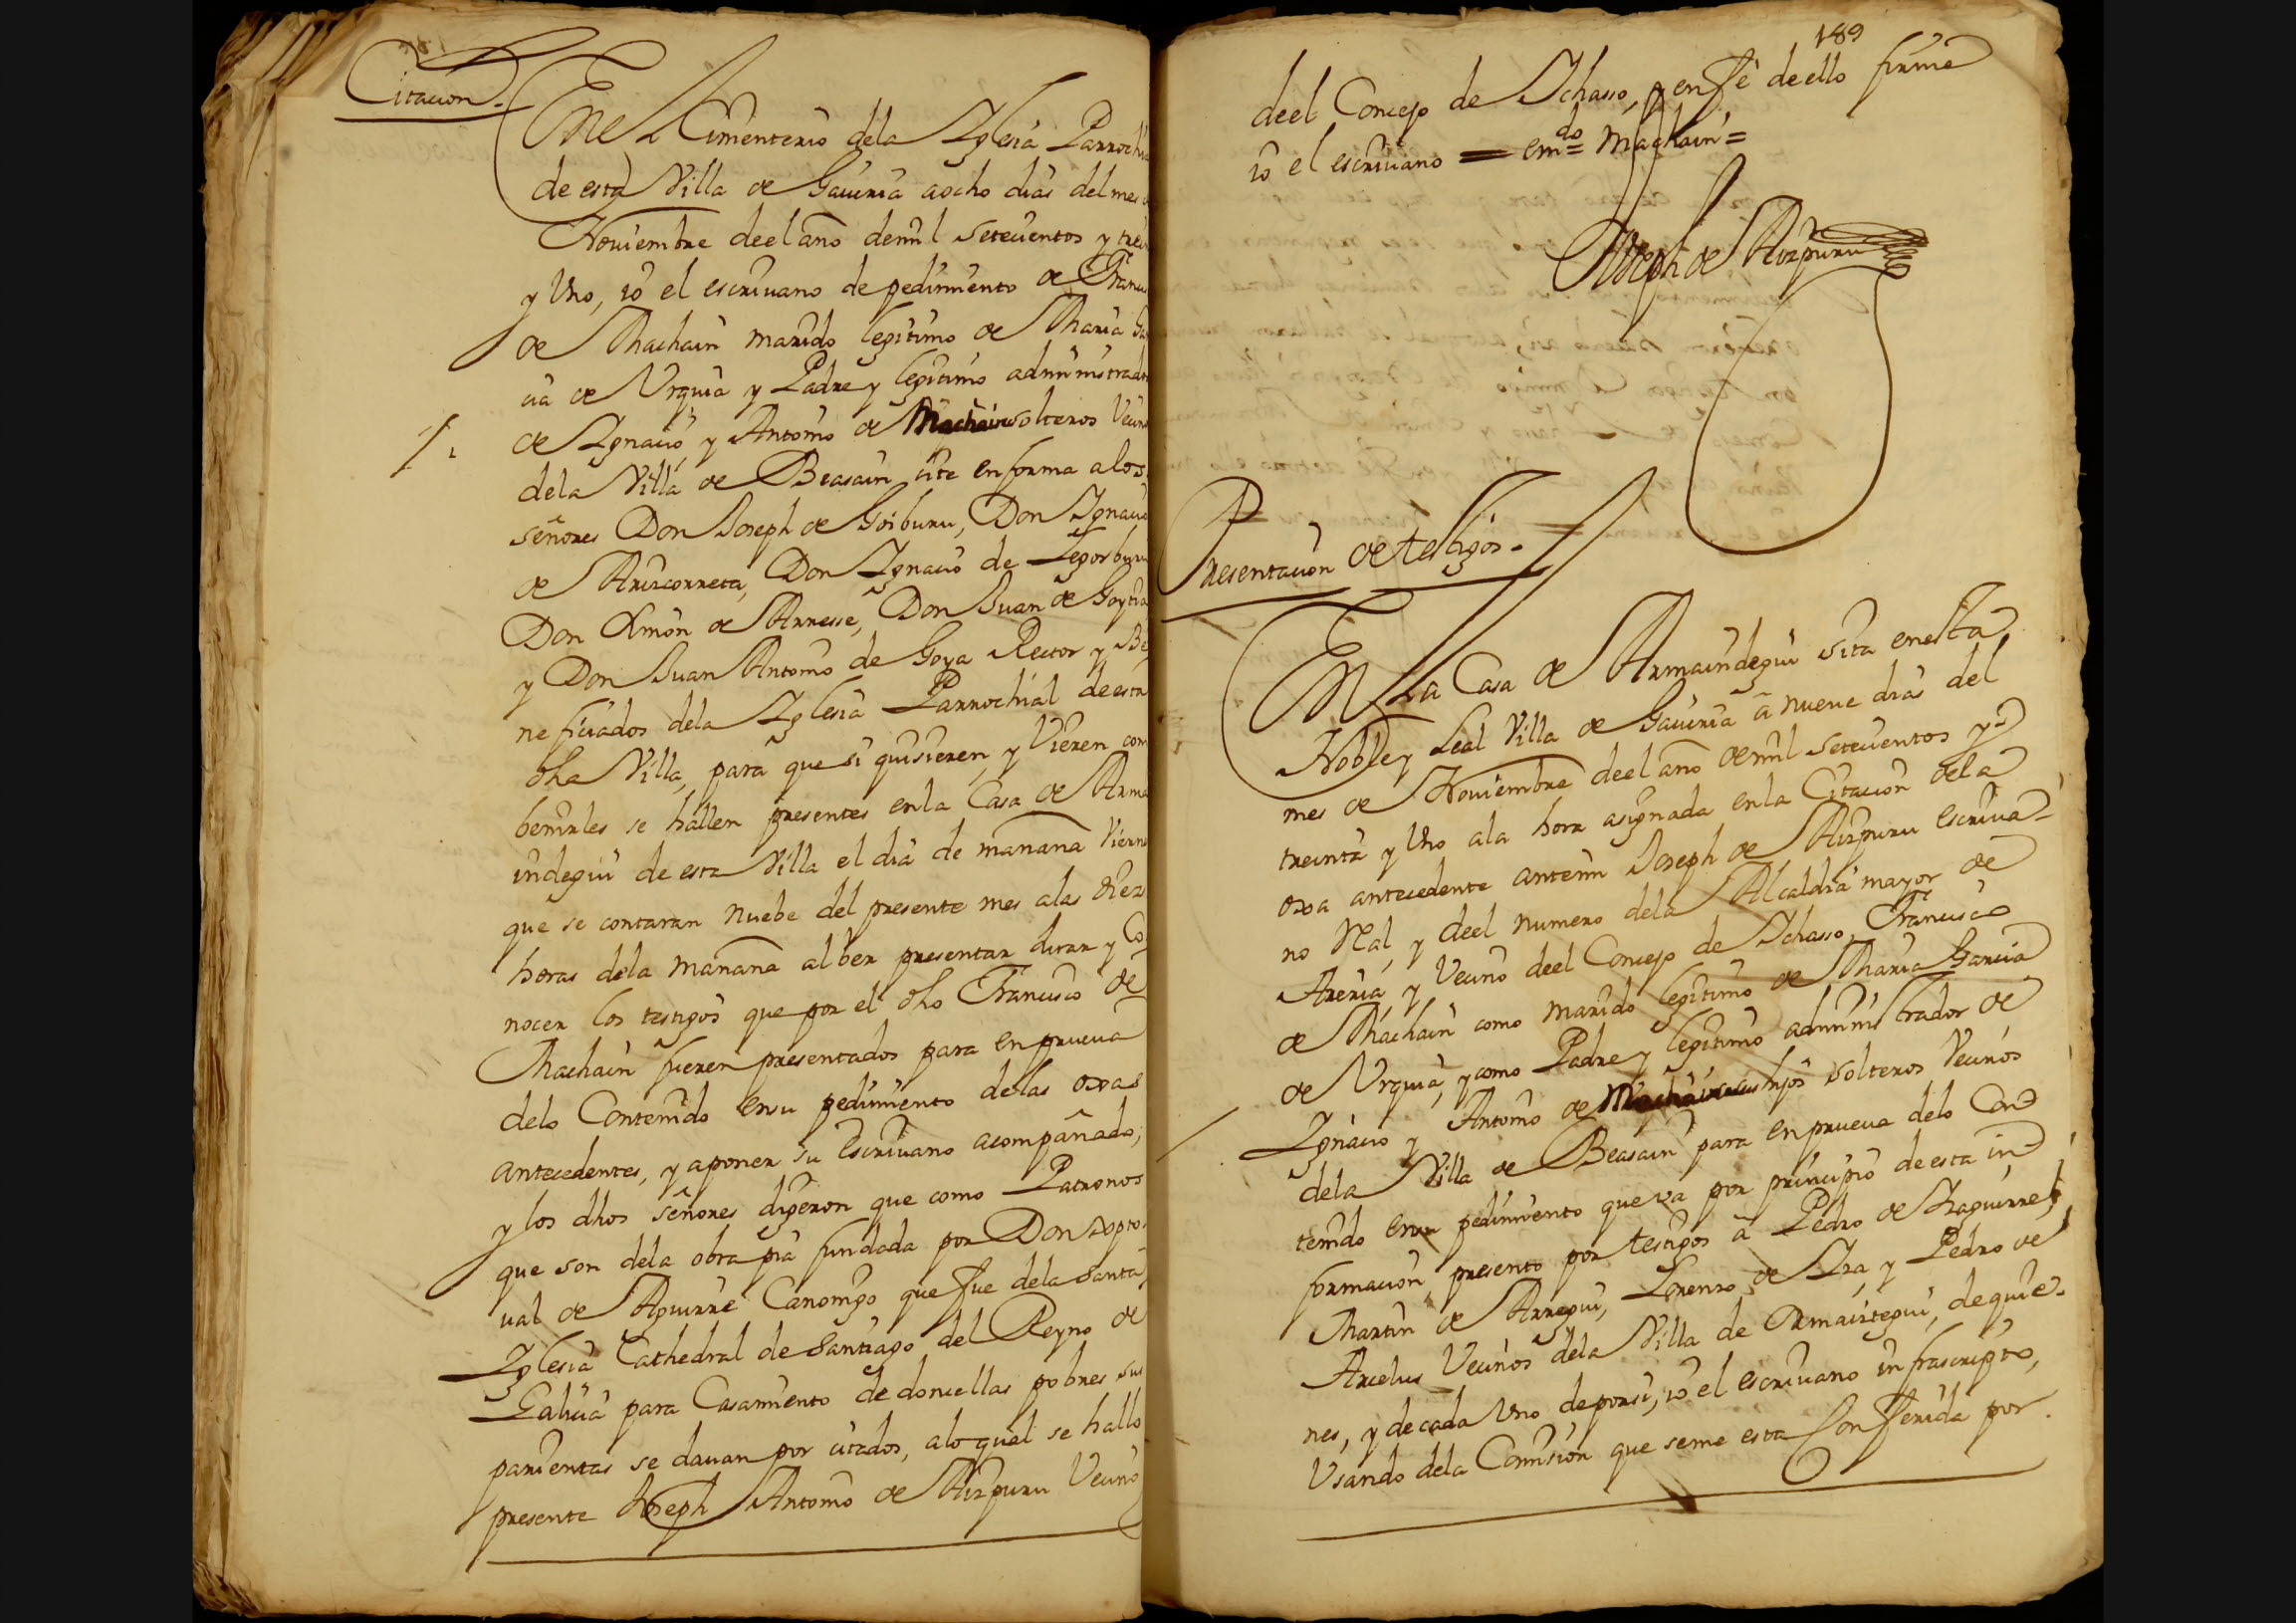 Citacion.
En el Cimenterio dela Yglesia Parrochi
de esta Villa de Gauiria aocho dias del mes
Nouiembre deel año demil setecientos y trei
y Uno, io el escriuano de pedimiento de Francis
de Machain marido legitimo de Maria Gar
cia de Vrquia y Padre y legitimo administrador
de Ygnacio, y Antonio de Machain solteros Vecin
dela Villa de Beasain cite enforma alos
señores Don Joseph de Goiburu, Don Ygnacio
de Arizcorreta, Don Ygnacio de Legorburu
Don Ximon de Arrese, Don Juan de Goytia
y Don Juan Antonio de Goya Rector y Be
neficiados dela Yglesia Parrochial deesta
dha Villa, para que si quisieren, y Vieren con
benirles se hallen presentes enla Casa de Arma
indegui de esta Villa el dia de mañana Viern
que se contaran nuebe del presente mes alas diez
horas dela mañana alber presentar Jurar y Co
nocer los testigos que por el dho Francisco de
Machain fueren presentados para en prueua
delo Contenido ensu pedimiento delas oxas
antecedentes, y aponer su escriuano acompañado,
y los dhos señores digeron que como Patronos
que son dela obra pia fundada por Don xpto
ual de Aguirre Canonigo que fue dela Santa
Yglesia Cathedral de Santiago del Reyno de
Galicia para Casamiento de doncellas pobres sus
parientas se dauan por citados, alo qual se hallo
presente Joseph Antonio de Aizpuru Vecino
189
deel Concejo de Ychasso, y enfe deello firme
io el escriuano = emdo = Machain =
Joseph de Aizpuru
Presentacion de testigos.
En la Casa de Armaindegui sita enesta
Noble y Leal Villa de Gauiria â nueue dias del
mes de Nouiembre deel año demil setecientos y
treinta y Uno ala hora asignada enla Citacion dela
oxa antecedente antemi Joseph de Aizpuru escriua-
no Real, y deel numero dela Alcaldia mayor de
Areria, y Vecino deel Concejo de Ychasso, Francisco
de Machain como marido legitimo de Maria Garcia
de Vrquia, y como Padre y legitimo administrador de
Ygnacio y Antonio de Machain sus hijos solteros Vecinos
dela Villa de Beasain para enprueua delo Con
tenido ensu pedimiento que va por principio de esta in
formacion, presento por testigos â Pedro de Yzaguirre,
Martin de Arregui, Lorenzo de Yza, y Pedro de
Arcelus Vecinos dela Villa de Ormaiztegui, de quie-
nes, y de cada Uno deporsi, io el escriuano infrascripto,
Usando dela Comision que seme esta Conferida por